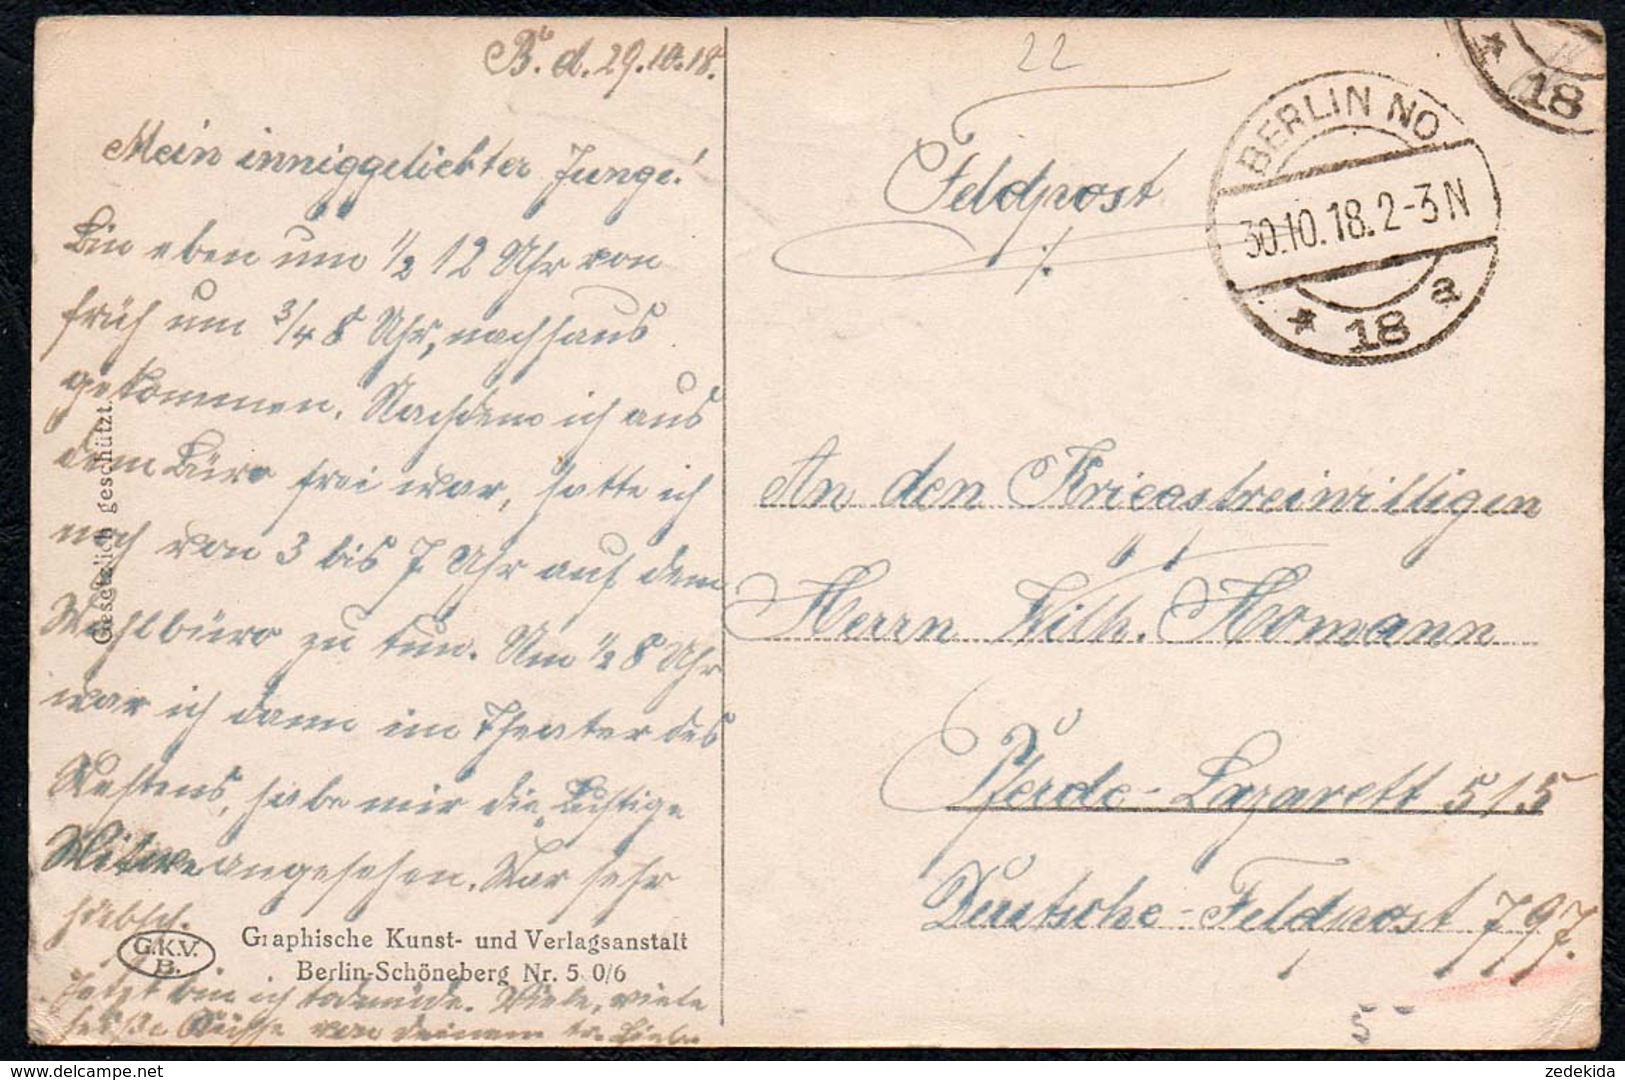 B. d. 29.10.18.
Mein inniggeliebter Junge!
Bin eben um 1/2 12 Uhr von
früh um 3/4 8 Uhr, nachhaus
gekommen. Nachdem ich aus
dem Büro frei war, hatte ich
noch von 3 bis 7 Uhr auf dem
Wahlbüro zu tun. Um 1/2 8 Uhr
war ich dann im Theater des
Westens, habe mir die „Lustige
Witwe angesehen. War sehr
hübsch.
Jetzt bin ich todmüde. Viele, viele
heiße Küsse von deinem tr. Lieb
Gesetzlich geschützt.
G.K.V.
B.
Graphische Kunst- und Verlagsanstalt
Berlin-Schöneberg Nr. 5 0/6
22
Feldpost
BERLIN NO
30.10.18. 2-3 N
* 18 a
* 18
An den Kriegsfreiwilligen
Herrn Wilh. Homann
Pferde-Lazarett 515
Deutsche-Feldpost 797.
5
zedekida